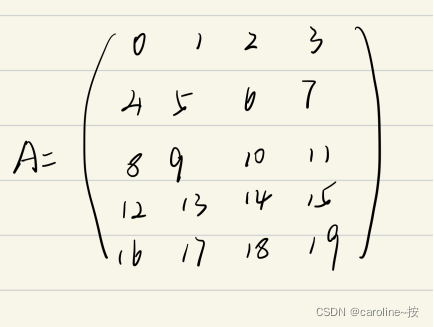 0 1 2 3
4 5 6 7
A= 8 9 10 11
12 13 14 15
16 17 18 19
CSDN @caroline~按